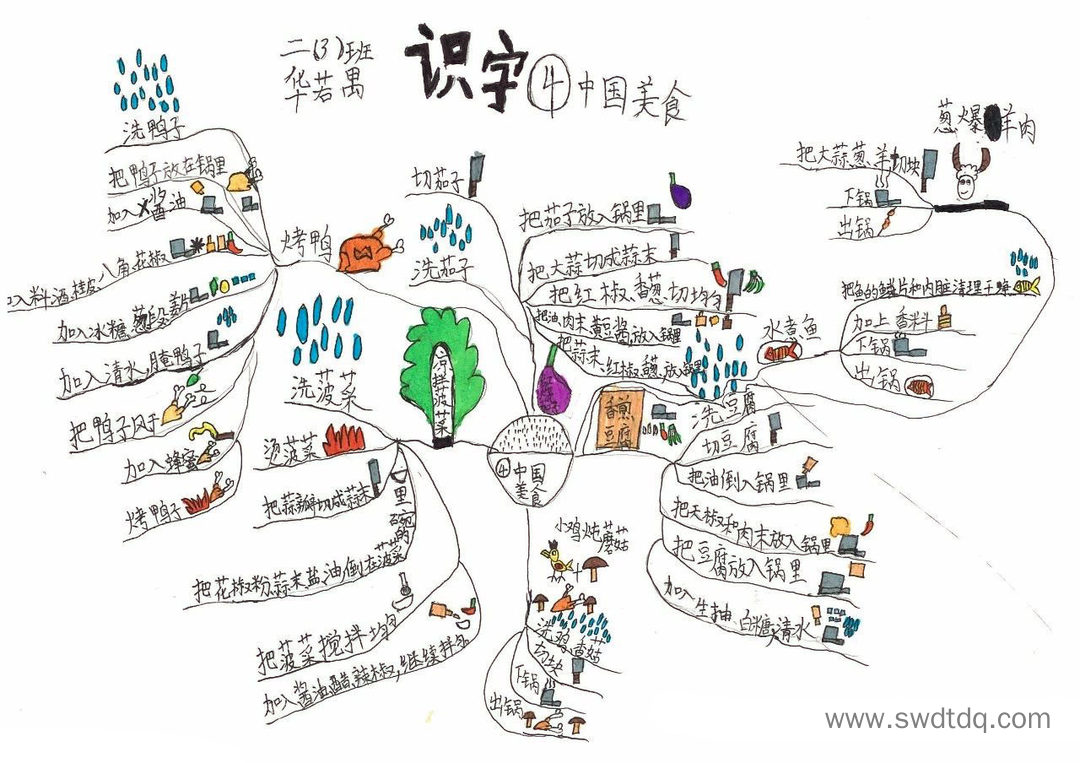 二(3)班
华若禺
识字④中国美食
④中国美食
烤鸭
洗鸭子
把鸭子放在锅里
加入酱油
加入料酒,桂皮、八角、花椒
加入冰糖,葱段,姜片
加入清水,腌鸭子
把鸭子风干
加入蜂蜜
烤鸭子
凉拌菠菜
洗菠菜
烫菠菜
把蒜瓣切成蒜末
把花椒粉蒜末盐油倒在菠菜的碗里
把菠菜搅拌均匀
加入酱油,醋,辣椒,继续拌匀
切茄子
洗茄子
把茄子放入锅里
把大蒜切成蒜末
把红椒、香葱切均匀
把油,肉末黄豆酱,放入锅里
把蒜末、红椒香葱,放锅里
葱爆羊肉
把大蒜、葱、羊切块
下锅
出锅
水煮鱼
把鱼的鳞片和内脏清理干燥
加上香料
下锅
出锅
香煎豆腐
洗豆腐
切豆腐
把油倒入锅里
把天椒和肉末放入锅里
把豆腐放入锅里
加入生抽,白糖,清水
小鸡炖蘑菇
洗鸡、香菇
切块
下锅
出锅
www.swdtdq.com